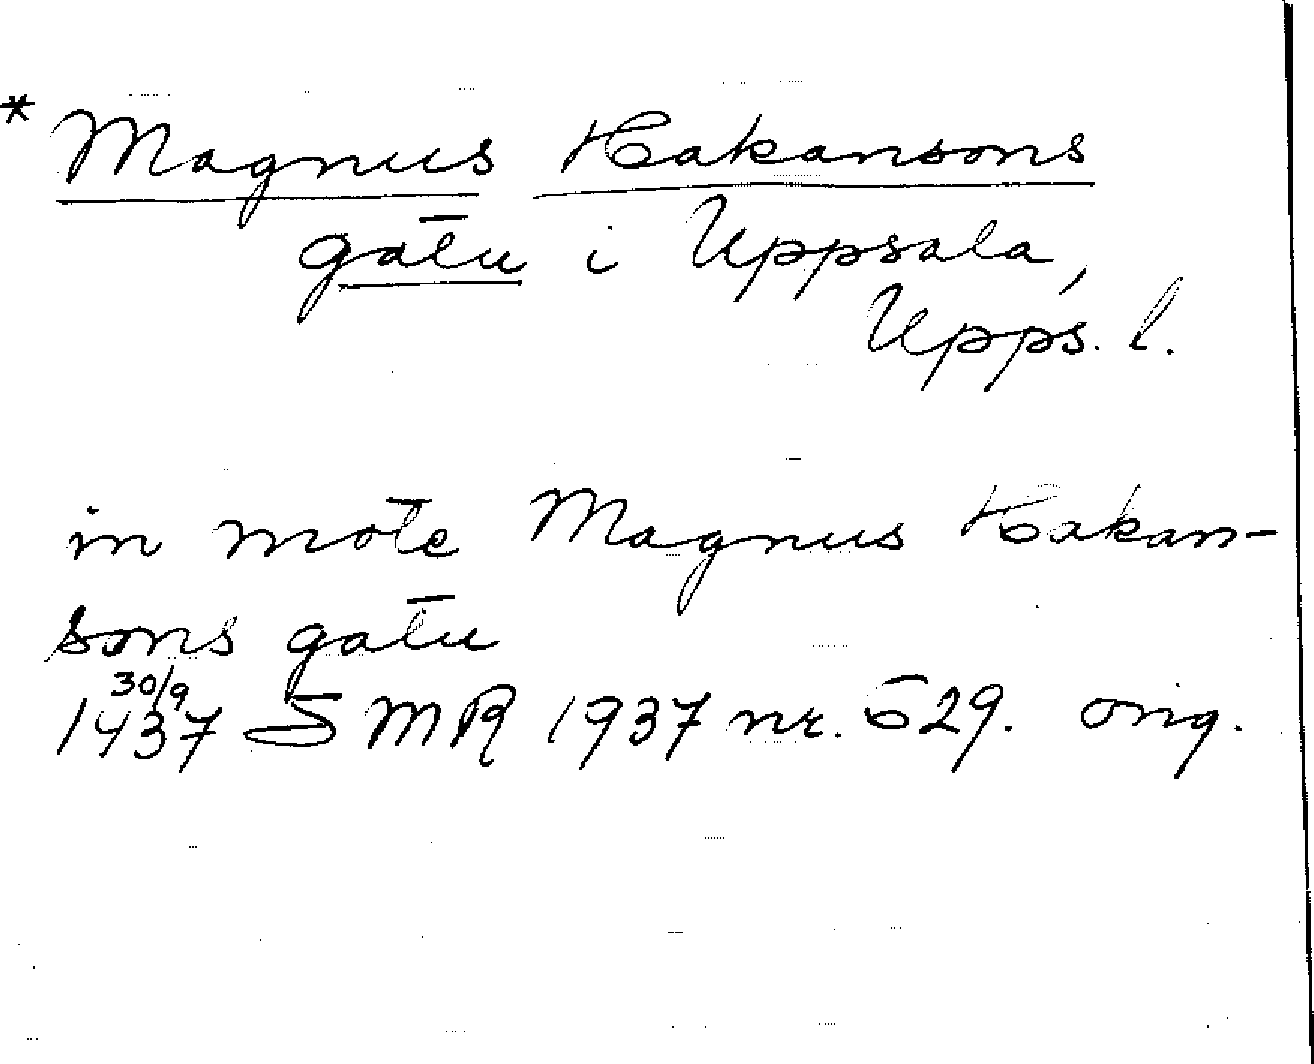 * Magnus Hakansons
gatu i Uppsala,
Upps. l.
in mote Magnus Hakan-
sons gatu
30/9
1437 SMR 1937 nr. 529. orig.